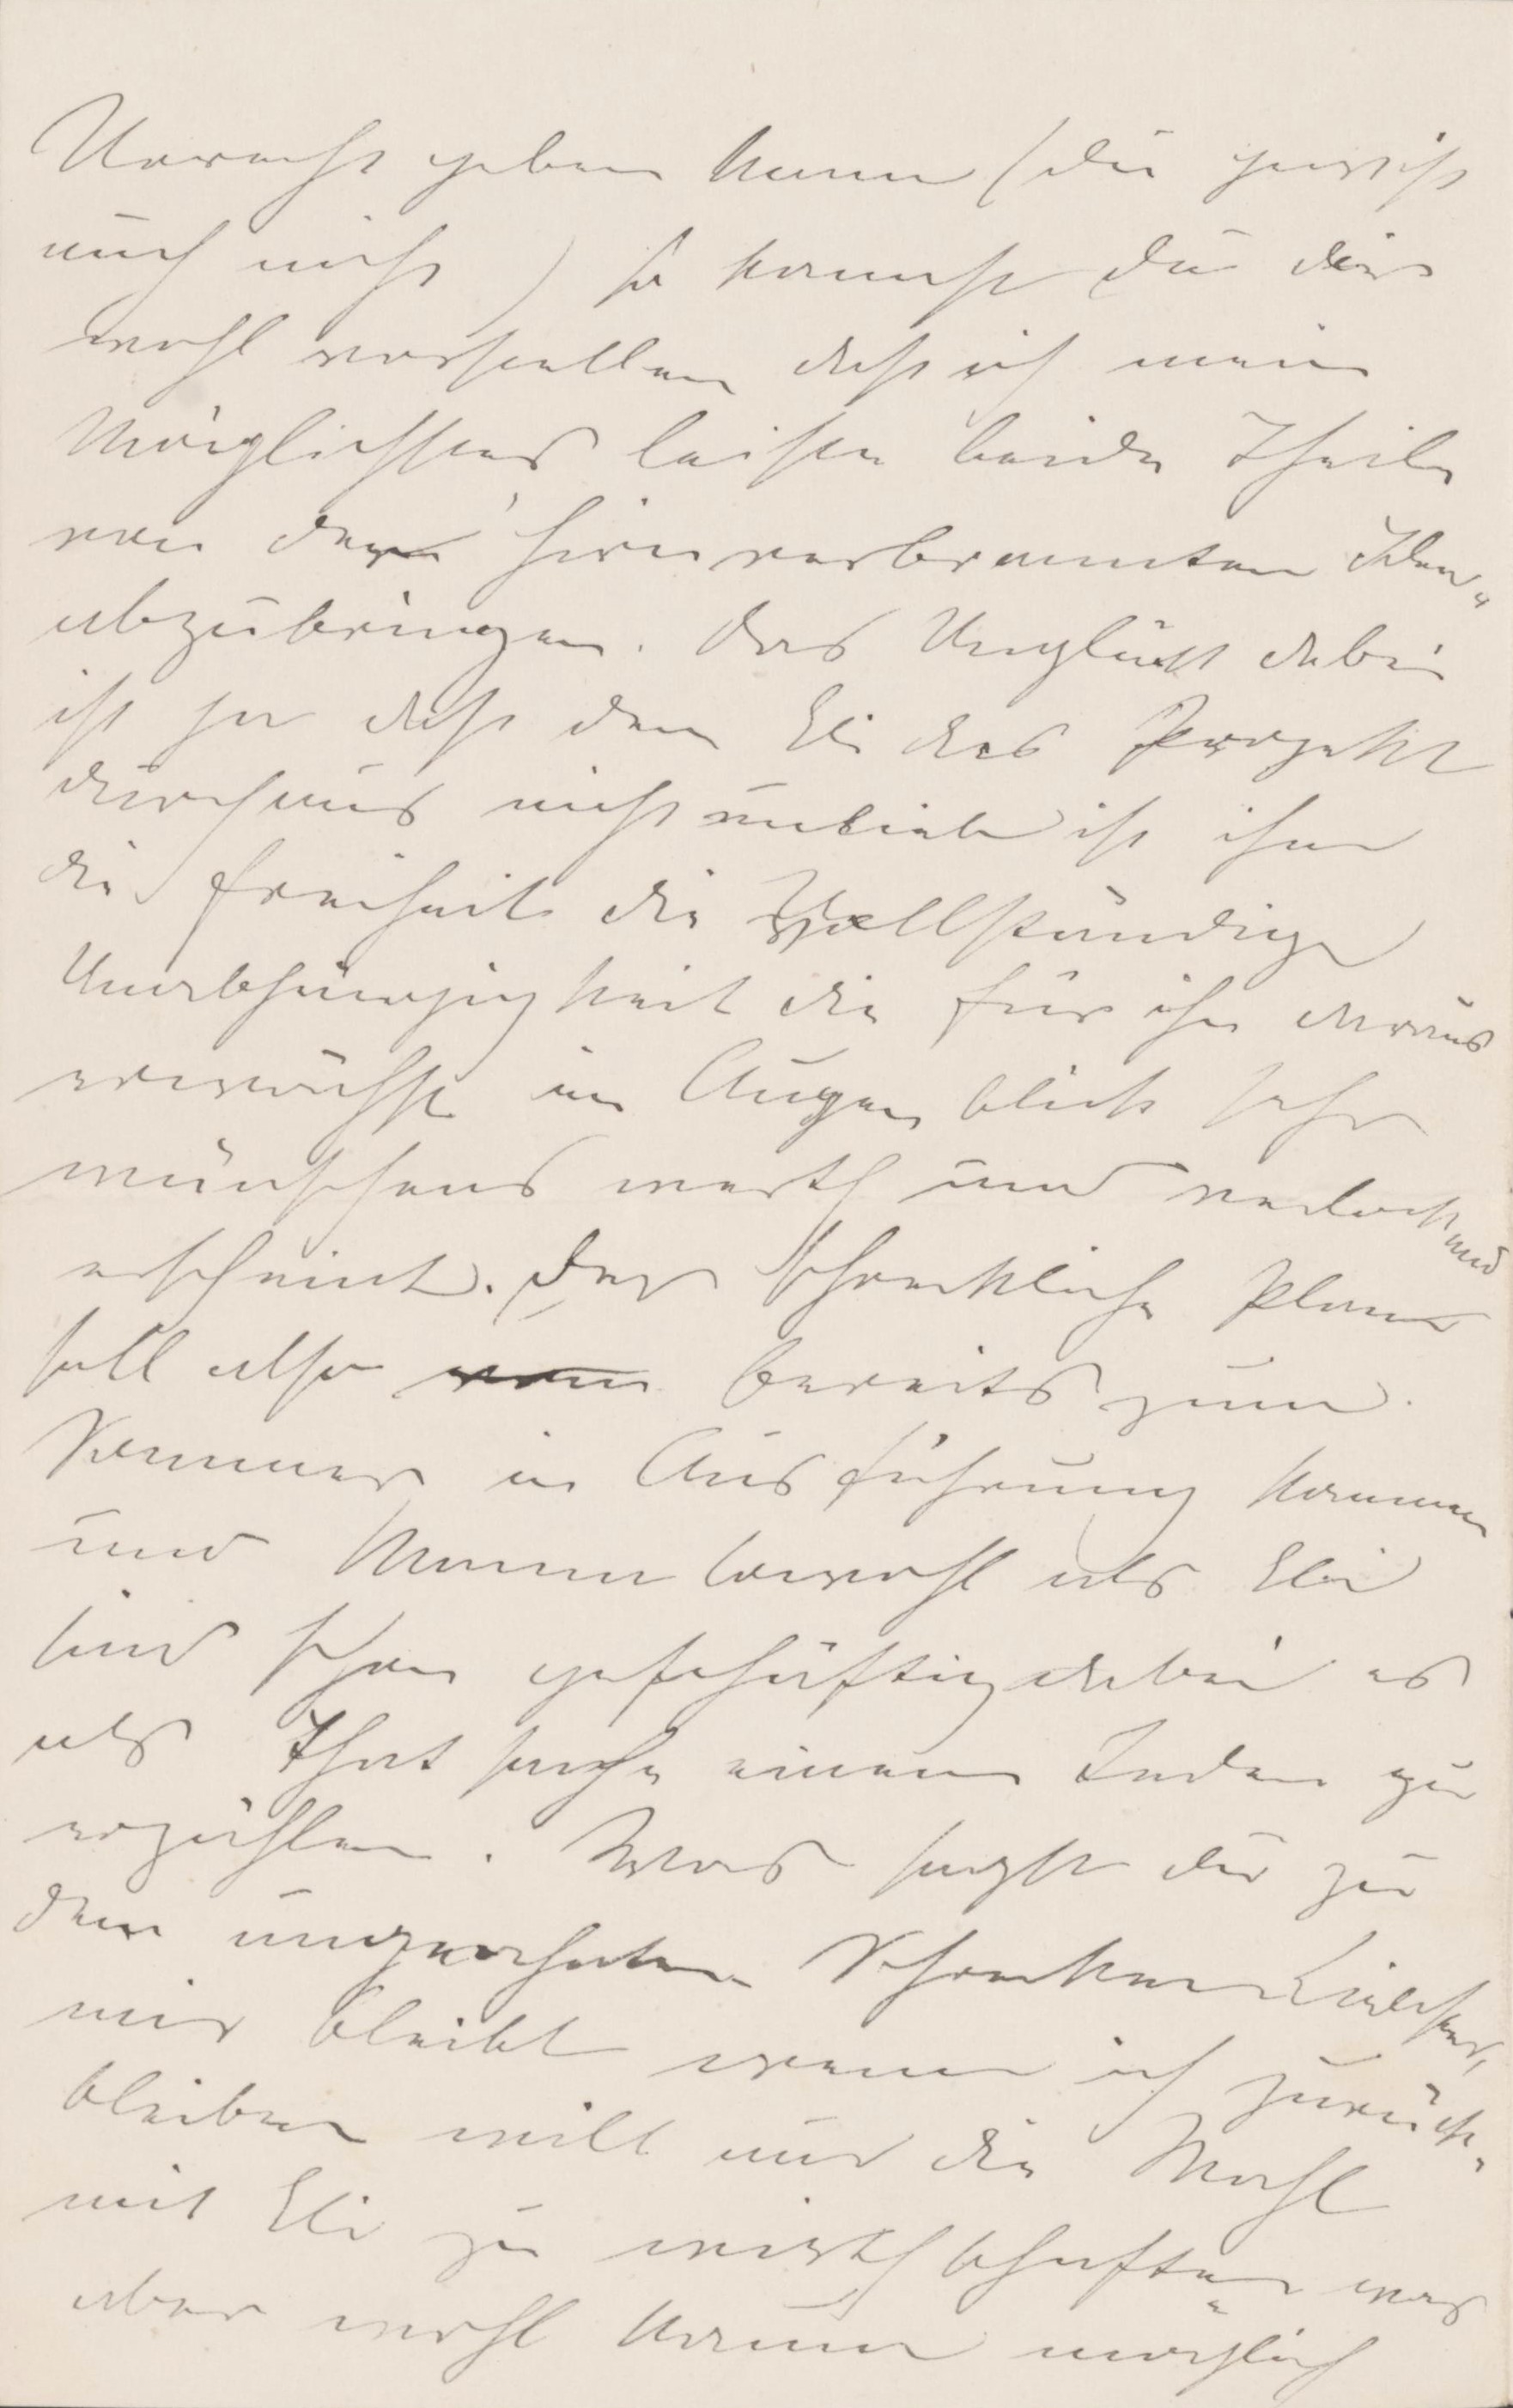 Unrecht geben kann (du gewiß
auch nicht) so kannst du dir
wohl vorstellen daß ich mein
Möglichstes leiste beide Theile
von der hirnverbrannten Idee
abzubringen. Das Unglück dabei
ist ja daß dem Eli das Projekt
durchaus nicht unlieb ist ihm
die Freiheit die Vollständige
Unabhängigkeit die für ihn daraus
erwüchse im Augenblick sehr
wünschens werth und verlockend
erscheint. Der schreckliche Plan
soll also bereits zum
Sommer in Ausführung kommen
und Mama sowohl als Eli
sind schon geschäftig dabei es
als Thatsache einem Jeden zu
erzählen. Was sagst du zu
dem Schrecken Liebster,
mir bleibt wenn ich zurück-
bleiben will nur die Wahl
mit Eli zu wirthschaften was
aber wohl kaum möglich